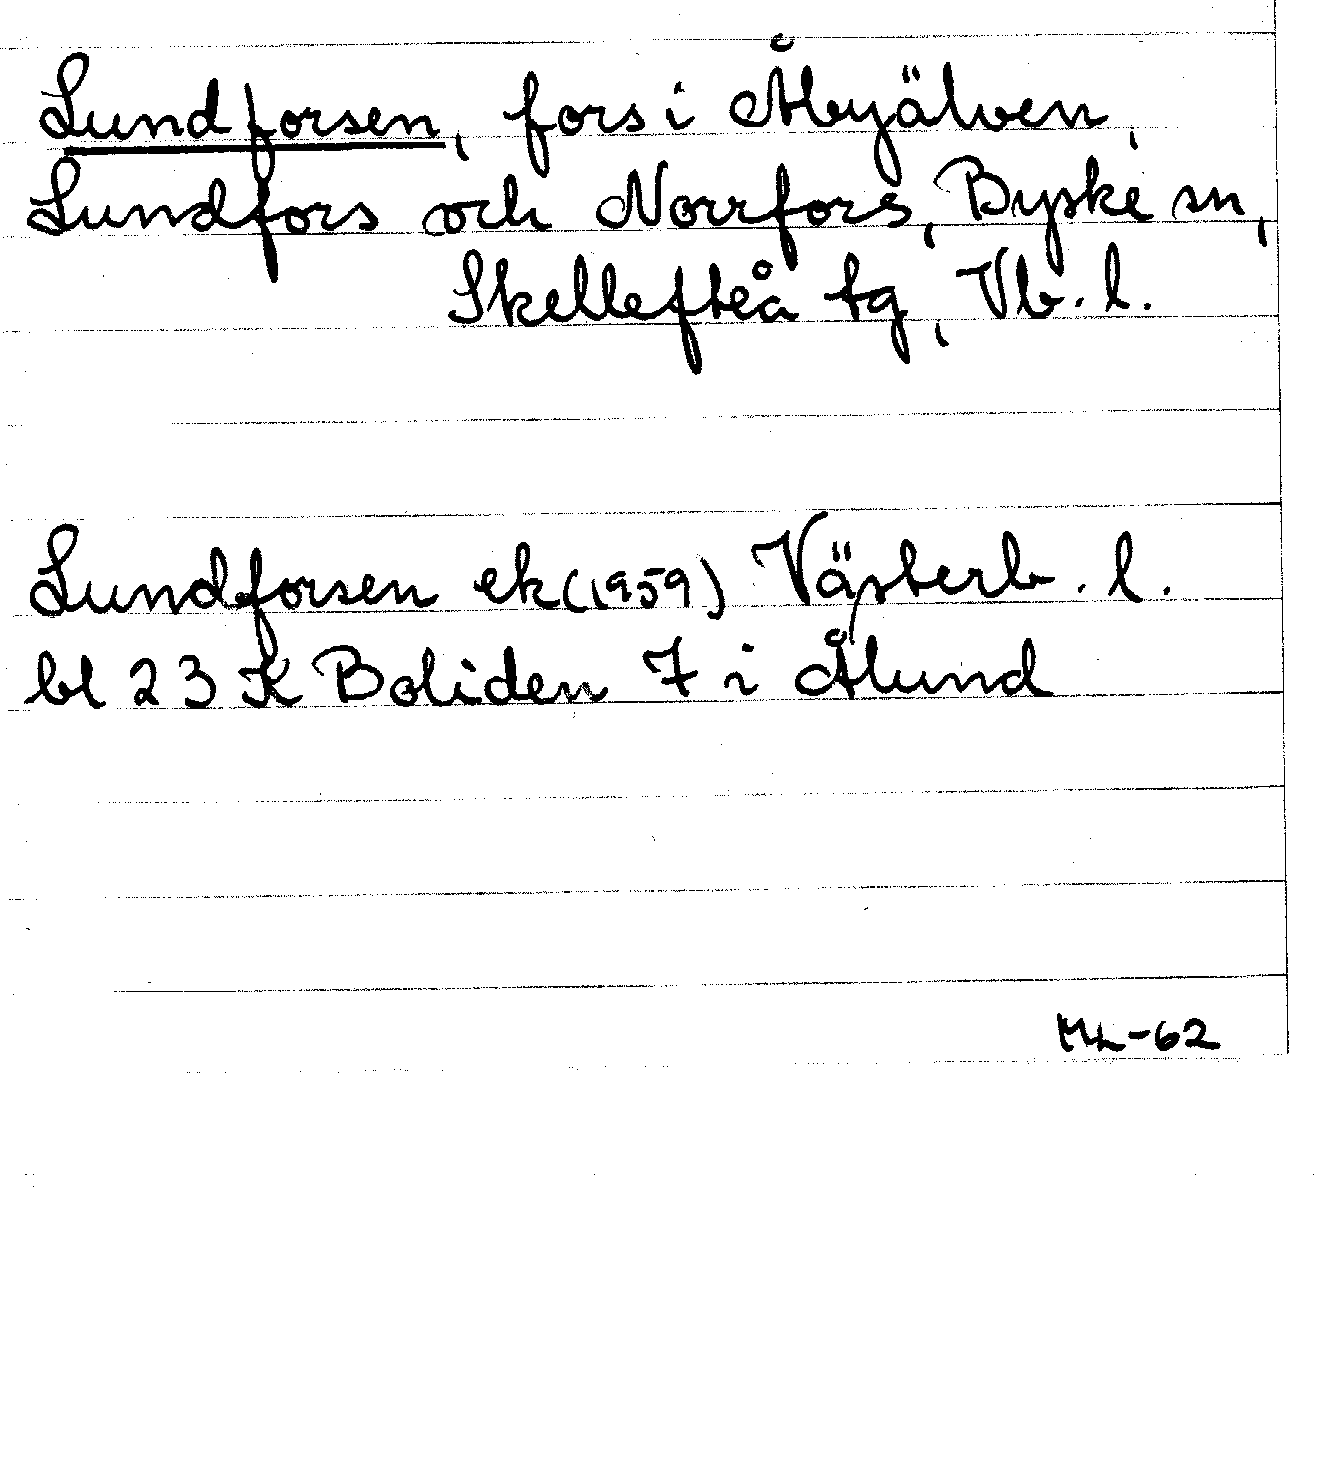 Lundforsen, fors i Åbyälven,
Lundfors och Norrfors, Byske sn,
Skellefteå tg, Vb. l.
Lundforsen ek (1959) Västerb. l.
bl 23 K Boliden 7 i Ålund
ML-62